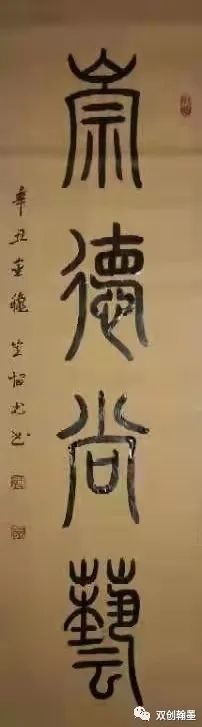 崇德尚藝
辛丑金穐
双创翰墨